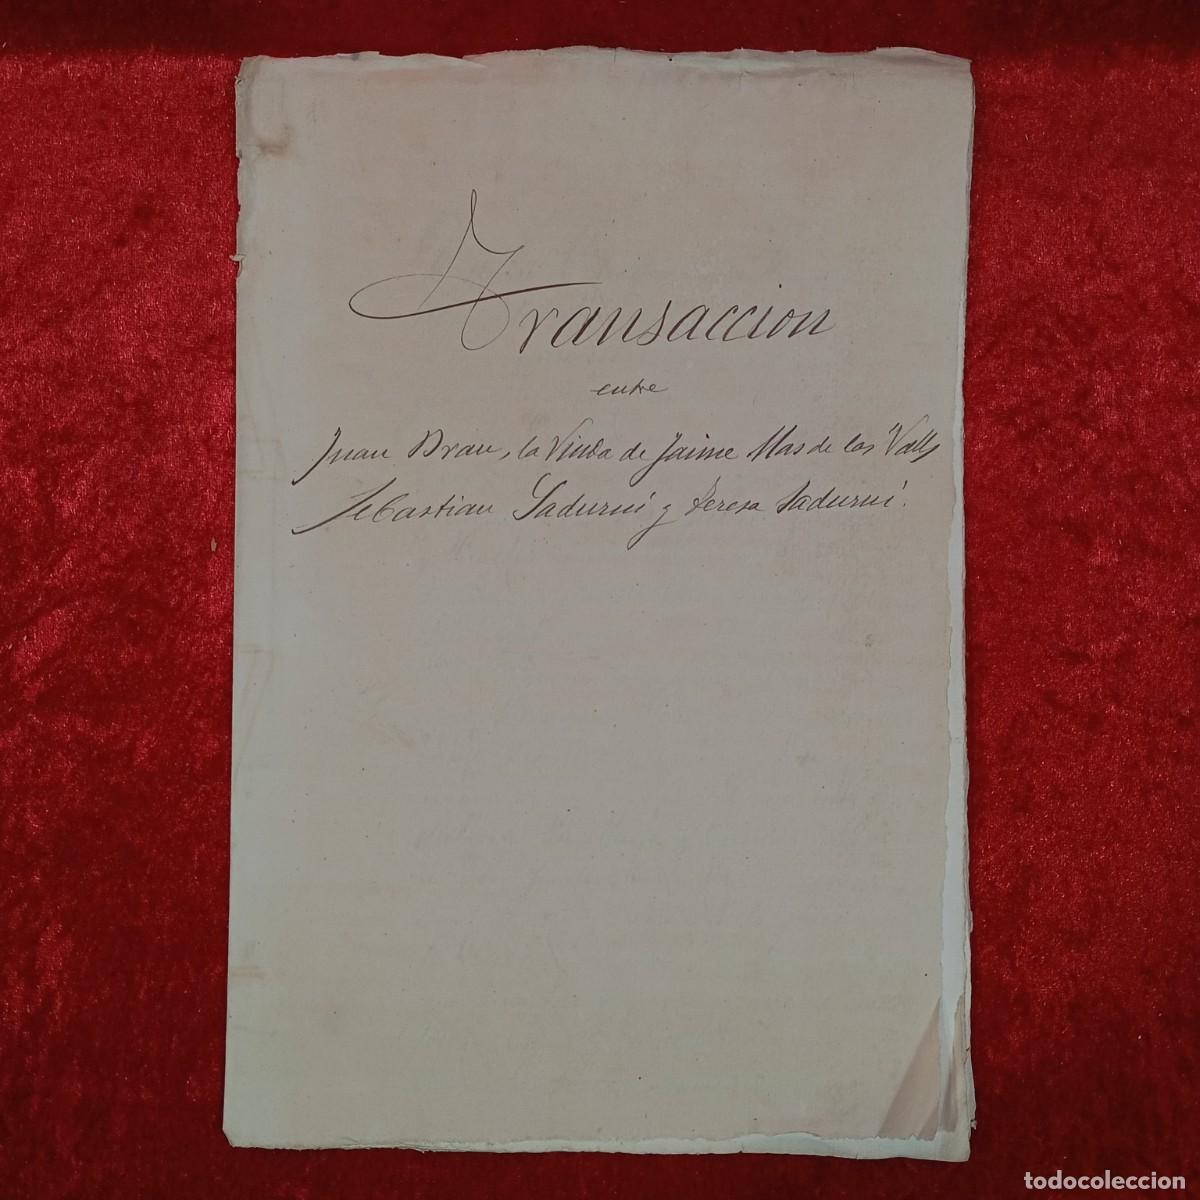 Transaccion
entre
Juan Brau, la Viuda de Jaime Mas de las Valls
Sebastian Sadurní y Teresa Sadurní.
todocoleccion